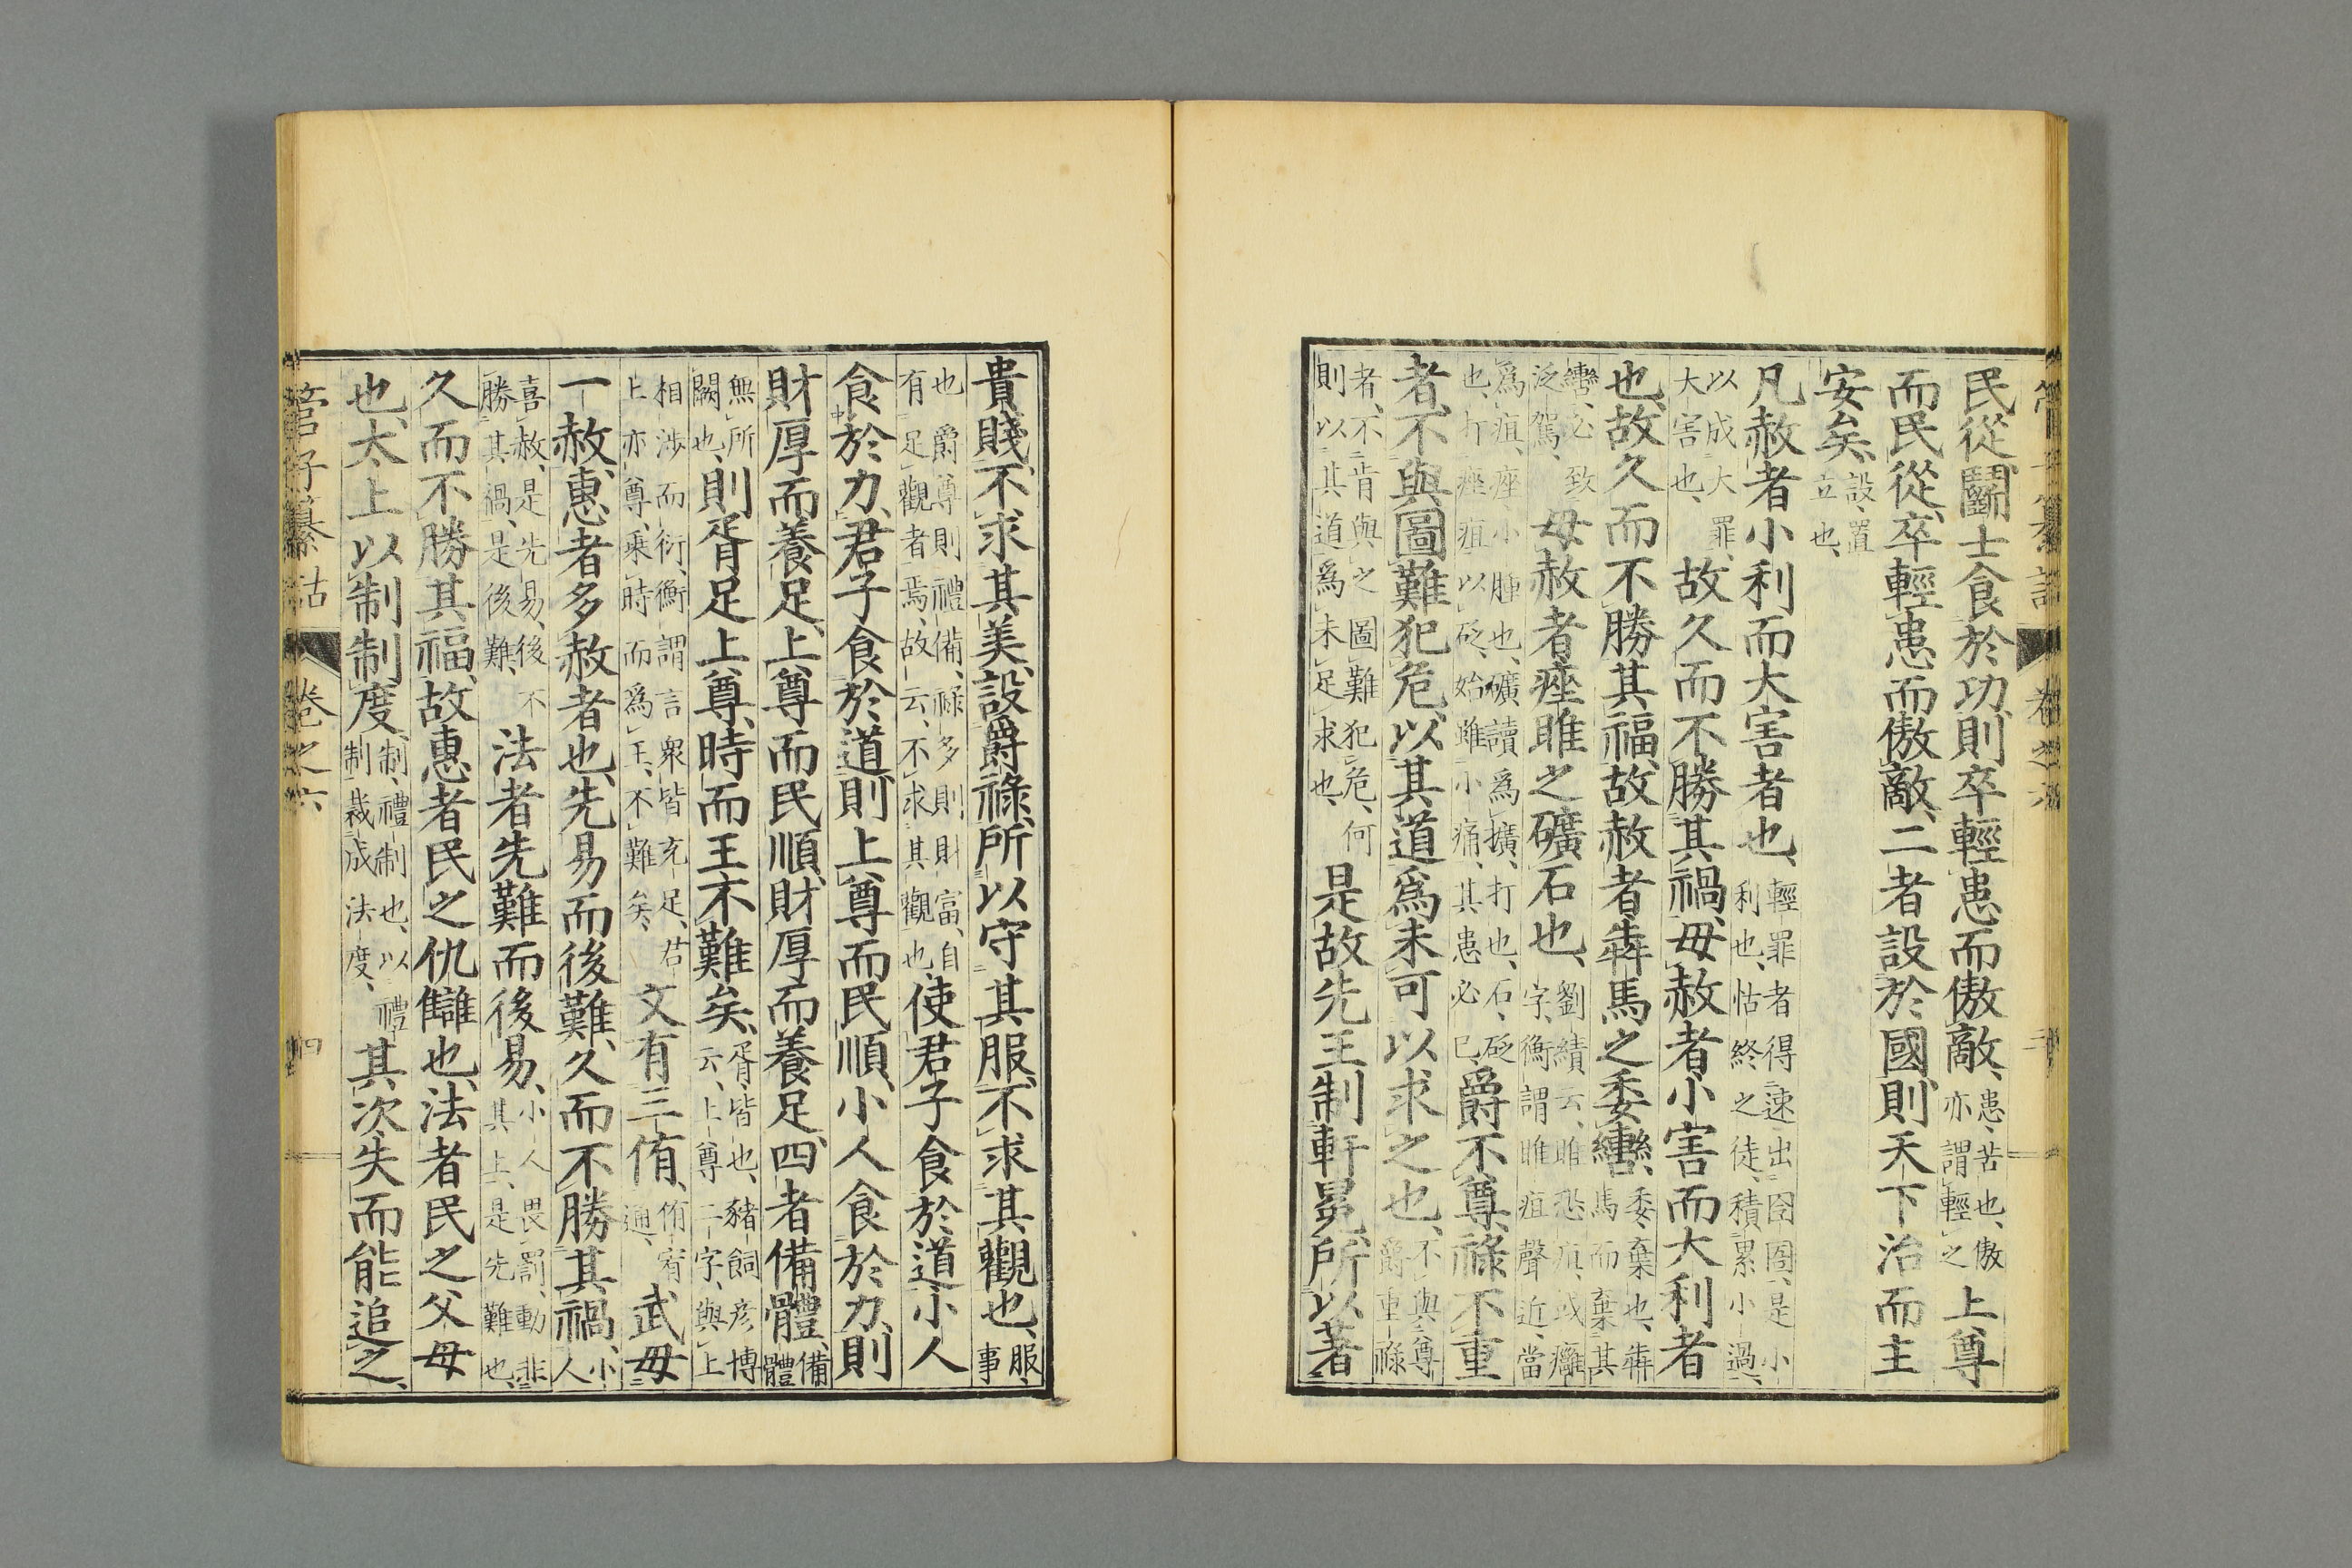 民從鬪士食於功、則卒輕患而傲敵、患、苦也、傲亦謂輕之上尊
而民從、卒輕患而傲敵、二者設於國、則天下治而主
安矣、設、置立也、
凡赦者小利而大害者也、輕罪者得速出囹圄、是小利也、怙終之徒、積累小過、
以成大罪、大害也、故久而不勝其禍、毋赦者小害而大利者
也、故久而不勝其福、故赦者犇馬之委轡、委、棄也、犇馬而棄其
轡、必致泛駕、毋赦者痤睢之礦石也、劉績云、睢恐疽、或癰字、衡謂睢疽聲近、當
爲疽、痤、小腫也、礦讀爲擴、打也、石、砭也、打痤疽以砭、始雖小痛、其患必已、爵不尊、祿不重
者、不與圖難犯危、以其道爲未可以求之也、不與尊爵重祿
者、不肯與之圖難犯危、何則以其道爲未足求也、是故先王制軒冕、所以著
貴賤、不求其美、設爵祿、所以守其服、不求其觀也、服、事
也、爵尊則禮備、祿多則財富、自有足觀者焉、故云、不求其觀也、使君子食於道、小人
食於力、君子食於道、則上尊而民順、小人食於力、則
財厚而養足、上尊而民順、財厚而養足、四者備體、備體
無所闕也、則胥足上尊、時而王不難矣、胥、皆也、豬飼彦博云、上尊二字、與上
相涉而衍、衡謂言衆皆充足、君上亦尊、乘時而爲王、不難矣、文有三侑、侑宥通、武毋
一赦、惠者多赦者也、先易而後難、久而不勝其禍、小人
喜赦、是先易、後不勝其禍、是後難、法者先難而後易、小人畏罰、動非其上、是先難也、
久而不勝其福、故惠者民之仇讎也、法者民之父母
也、太上以制制度、制、禮制也、以禮制裁成法度、其次失而能追之、
管子纂詁 卷之六 四